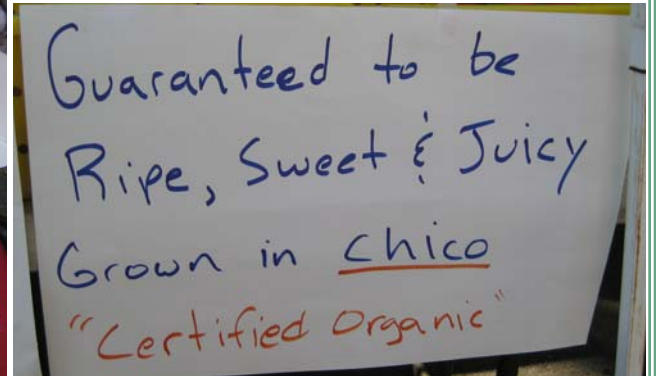 Guaranteed to be
Ripe, Sweet & Juicy
Grown in Chico
"Certified Organic"